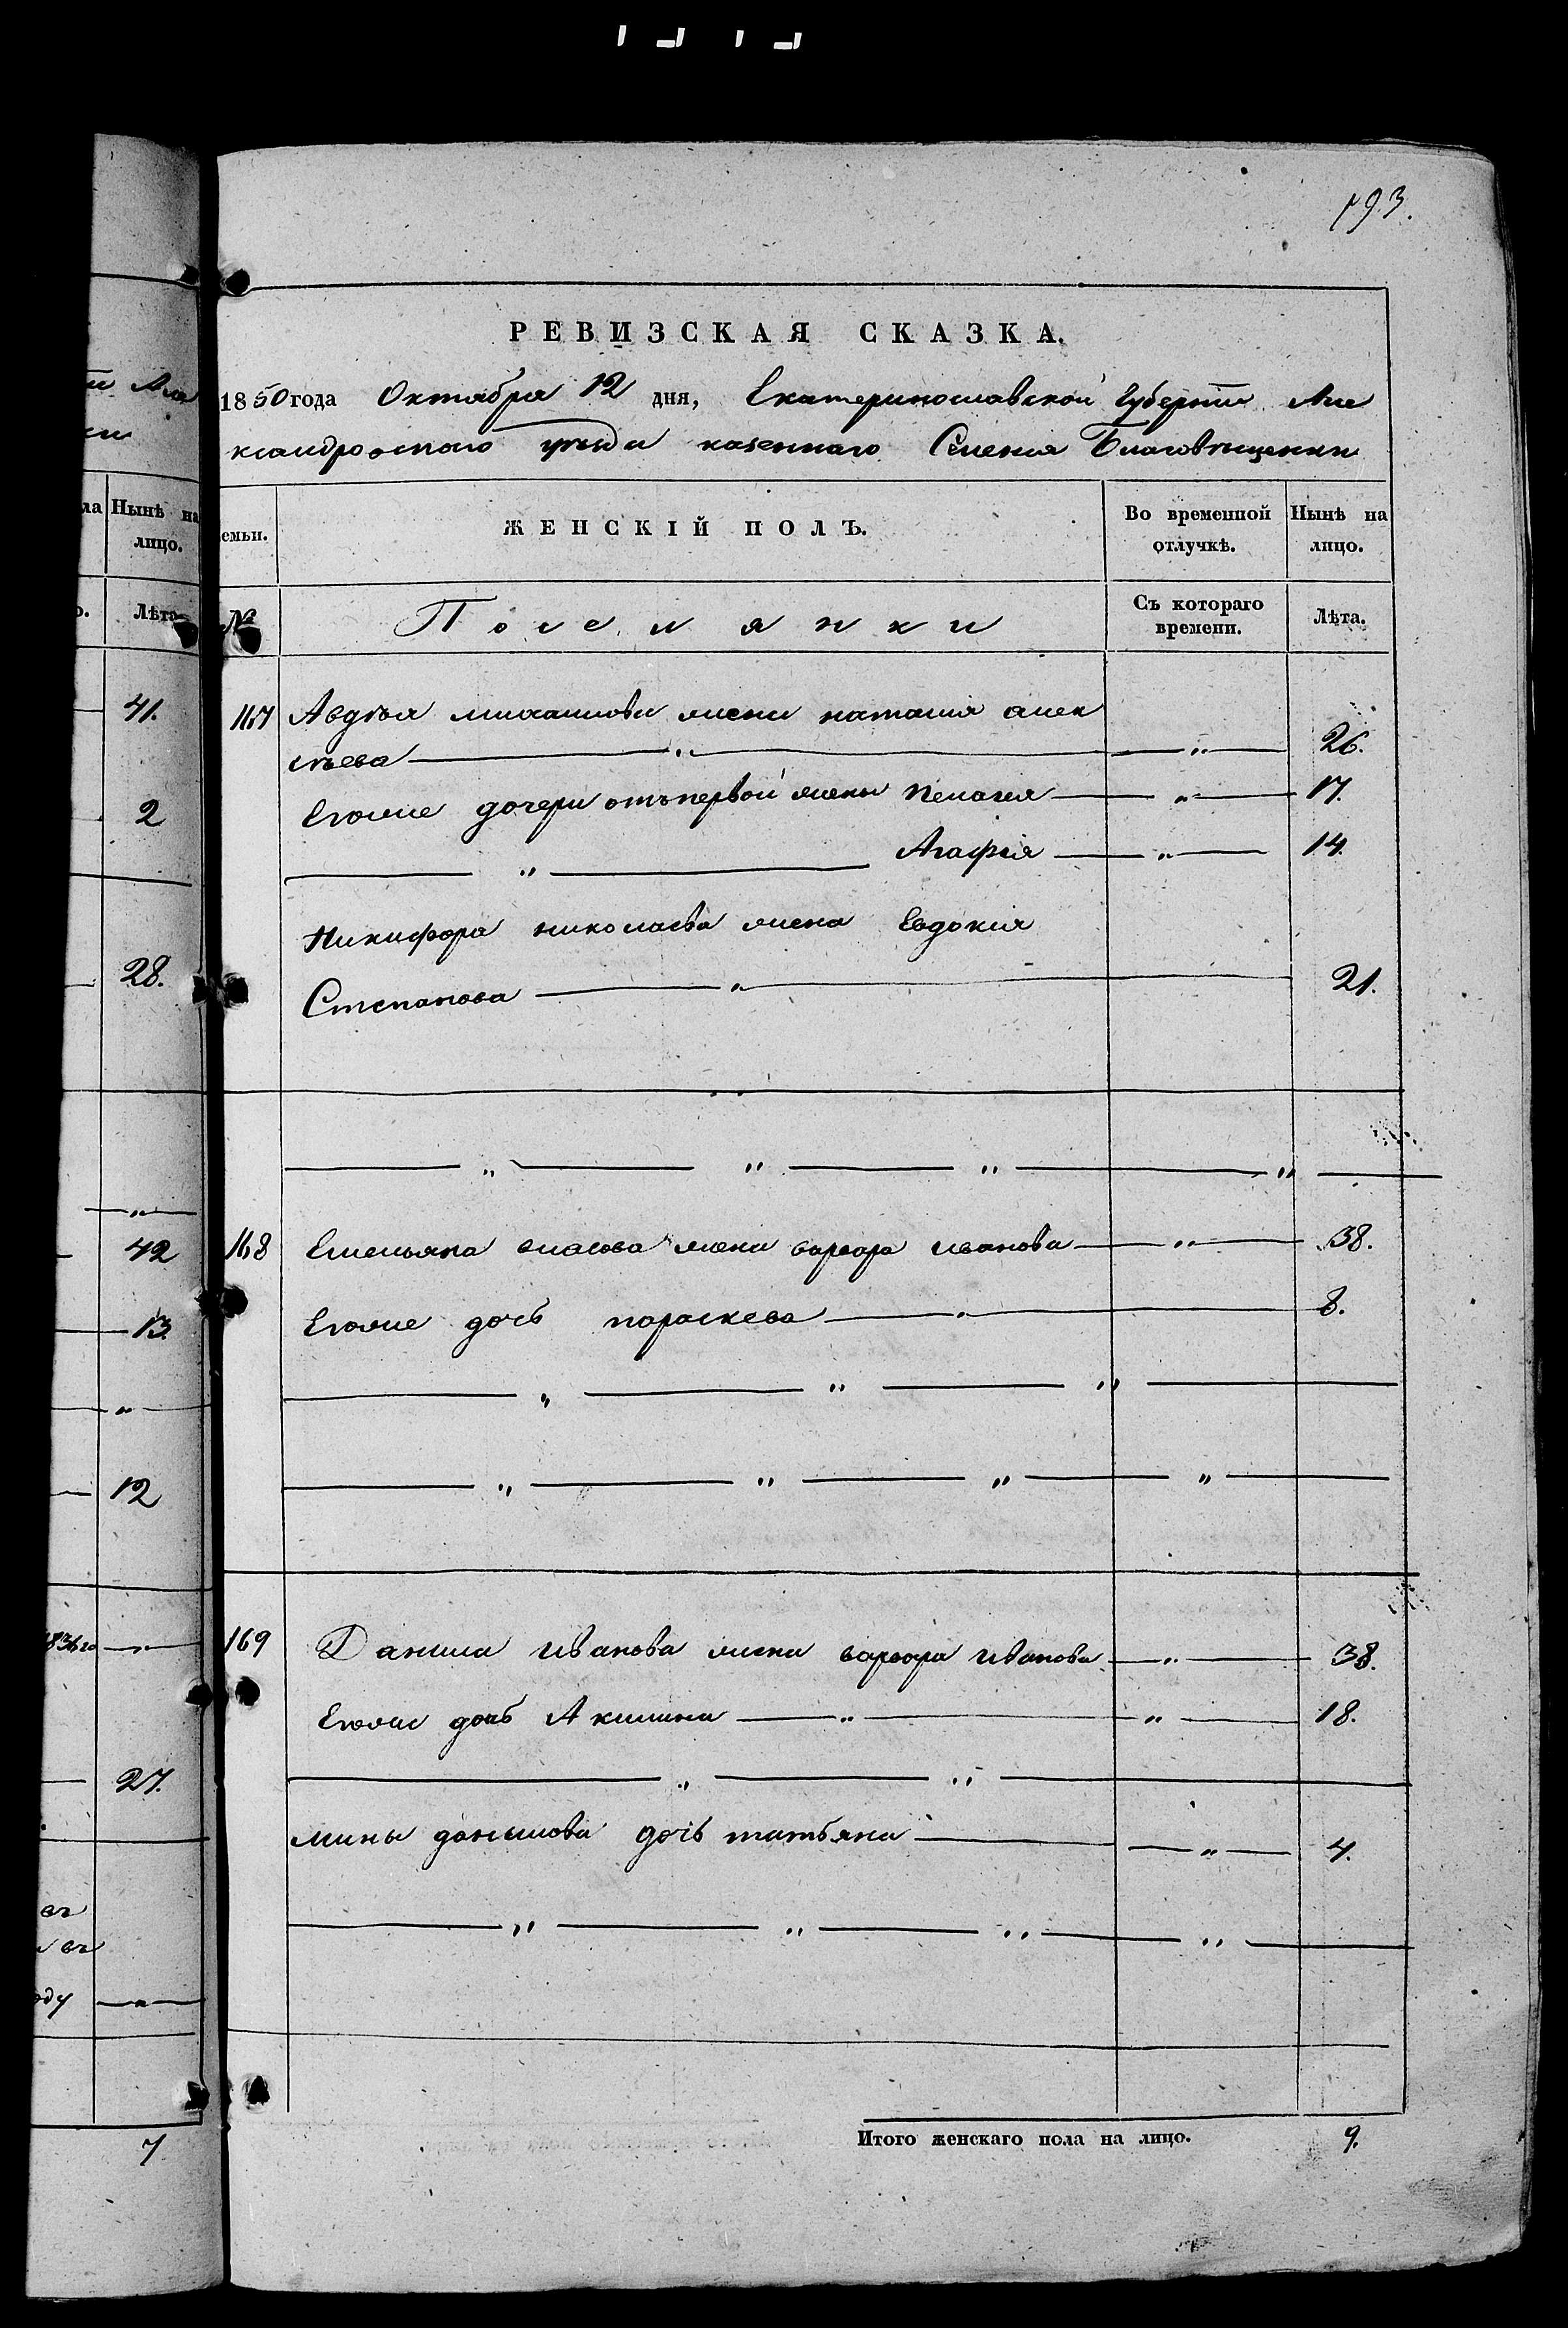 193.
РЕВИЗСКАЯ СКАЗКА.
1850 года Октября 12 дня, Екатеринославской Губернии Але
ксандровскаго уѣзда казеннаго Селения Благовѣщенки
ла
Нынѣ на лицо.
Лѣта
41.
2
28.
42
13.
12
1836го
27.
7
семьи.
ЖЕНСКІЙ ПОЛЪ.
Во временной отлучкѣ.
Нынѣ на лицо.
№
Поселянки
Съ котораго времени.
Лѣта.
167 Авдѣя михаилова жена наталия алек
сѣева 26.
Егоже дочери отъ первой жены пелагея 17.
Агафия 14.
Никифора николаева жена Евдокия
Степанова 21.
168 Емельяна власова жена варвара иванова 38.
Егоже дочь параскева 8.
169 Данила иванова жена варвара иванова 38.
Егоже дочь Акилина 18.
мины данилова дочь татьяна 4.
Итого женскаго пола на лицо. 9.